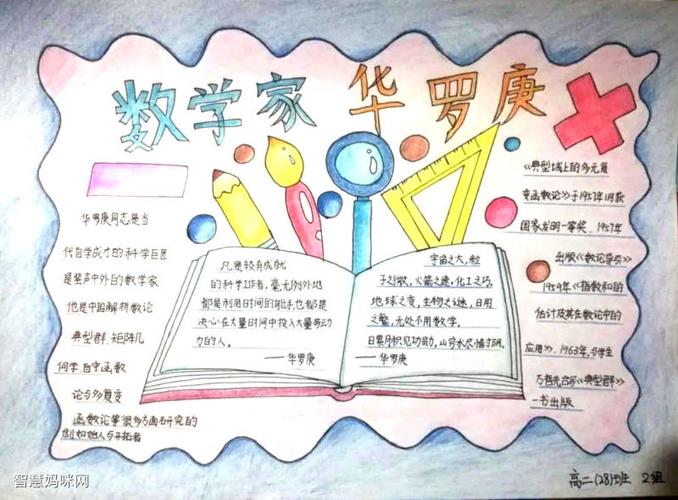 数学家 华罗庚
华罗庚同志是当
代自学成才的科学巨匠
是蜚声中外的数学家
他是中国解析数论
典型群、矩阵几
何学、自守函数
论与多复变
函数论等很多方面研究的
创始人与开拓者
凡是较有成就
的科学工作者，毫无例外地
都是利用时间的能手，也都是
决心在大量时间中投入大量劳动
力的人。
——华罗庚
宇宙之大，粒
子之微，火箭之速，化工之巧，
地球之变，生物之谜，日用
之繁，无处不用数学。
日累月积见功勋，山穷水尽惜寸阴。
——华罗庚
《典型域上的多元复
变函数论》于1957年1月获
国家发明一等奖，1957年
出版《数论导引》
1959年《指数和的
估计及其在数论中的
应用》，1963年，与学生
万哲先合写《典型群》
一书出版
高二(28)班 2组
智慧妈咪网